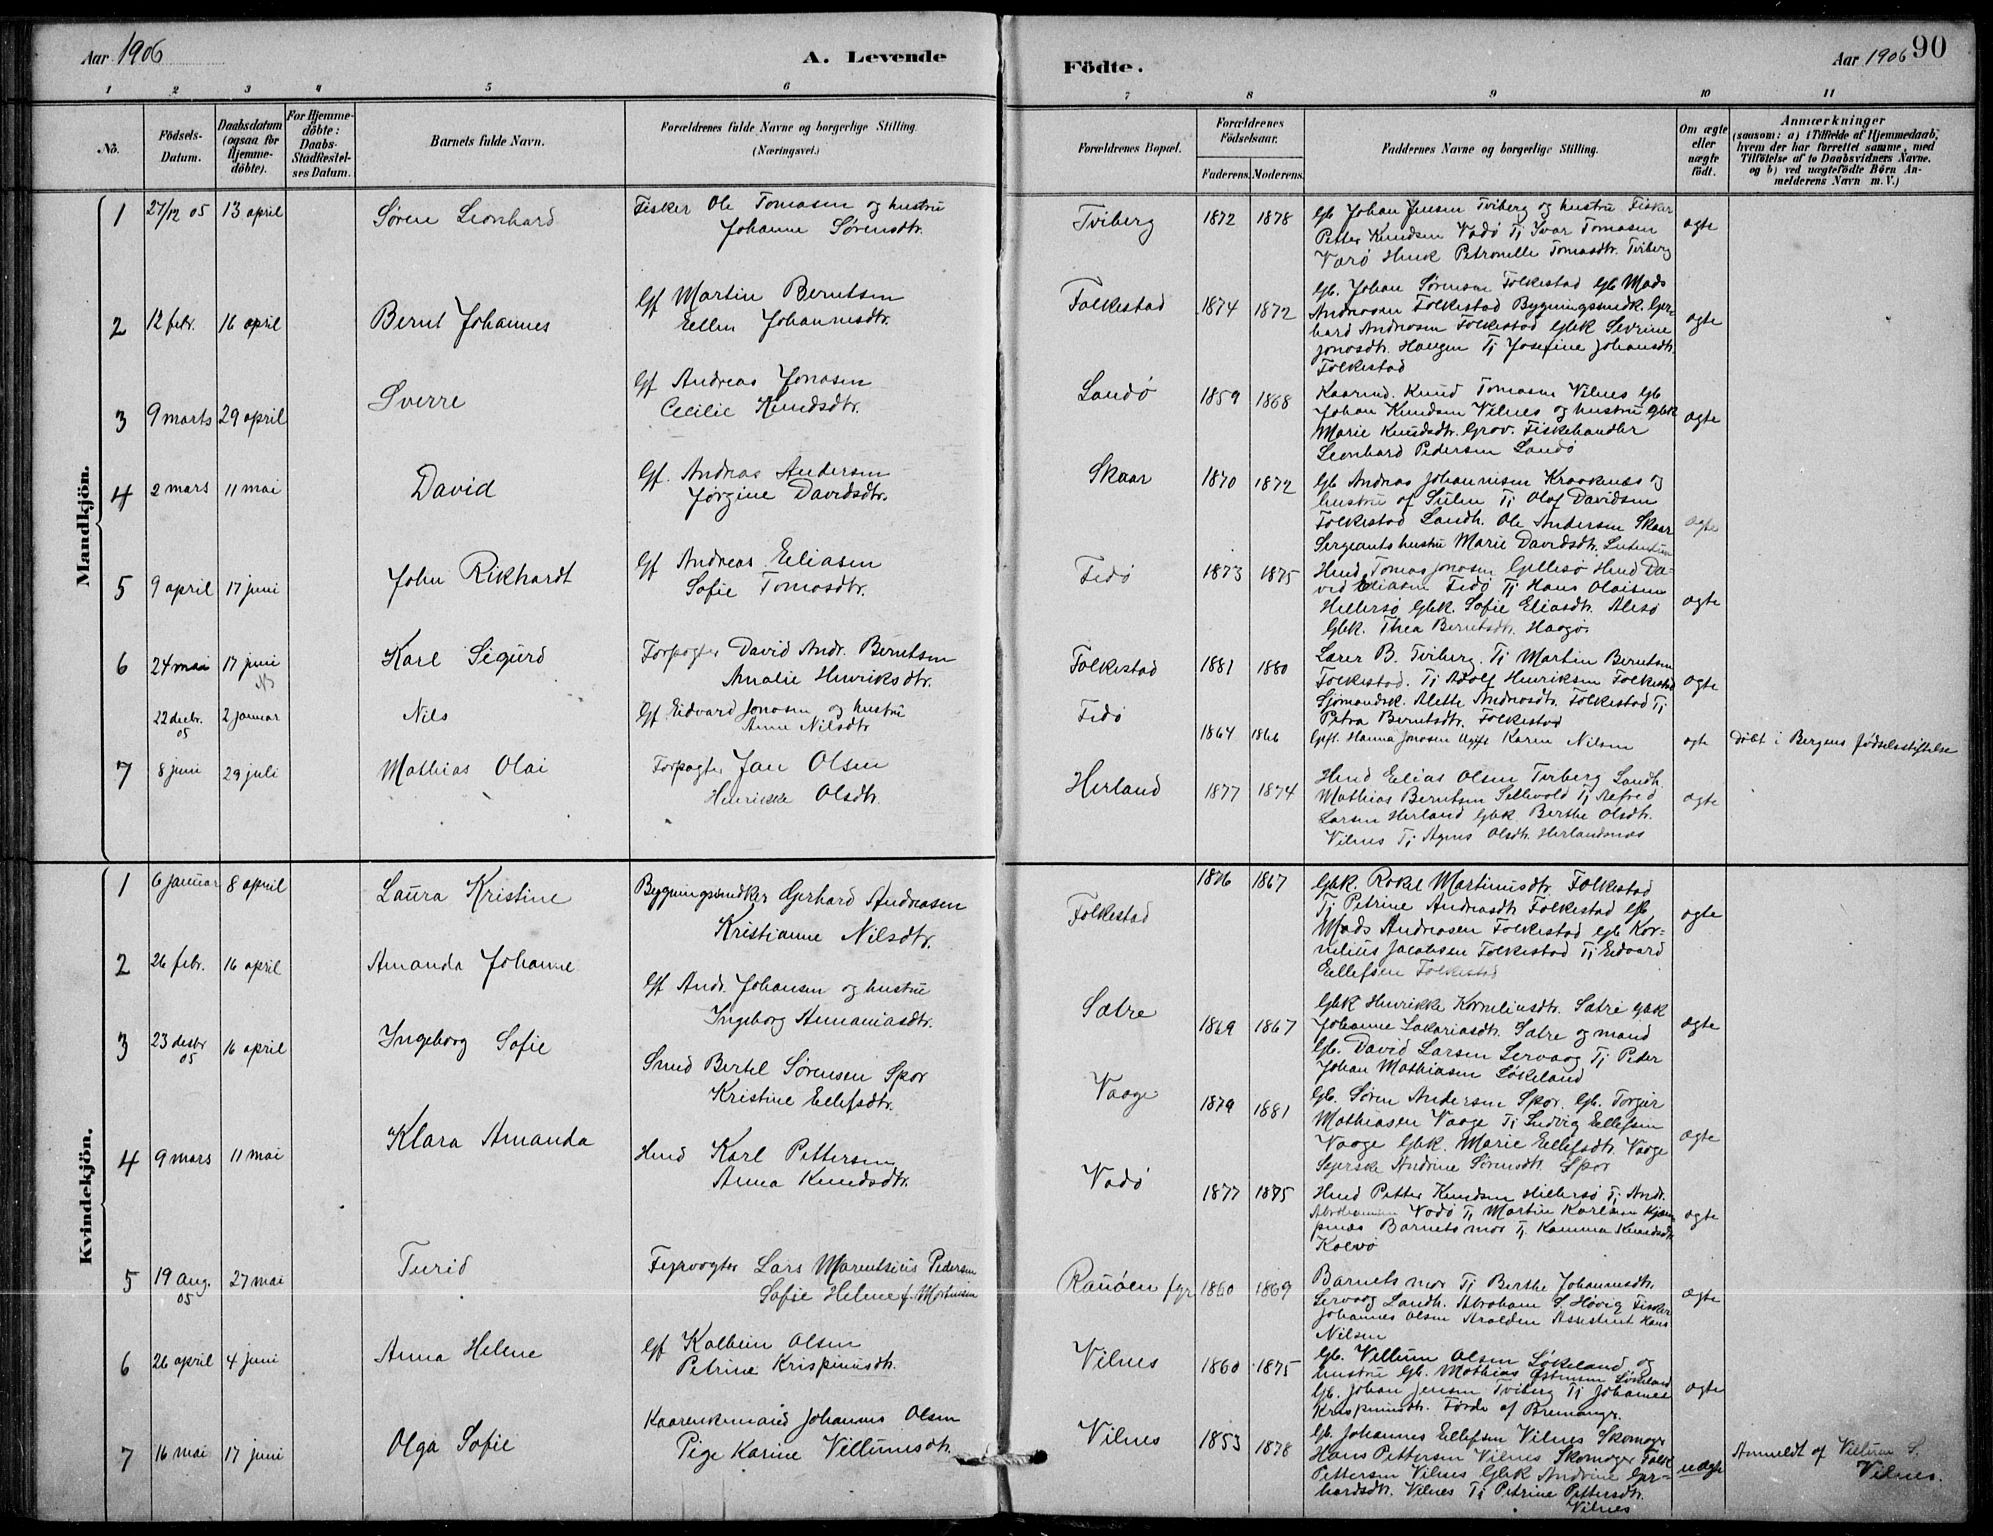 Aar 1906
A. Levende
Födte.
Aar 1906 90
1 2 3 4 5 6 7 8 9 10 11
No.
Födsels-
Datum.
Daabsdatum
(ogsaa for
Hjemme-
döbte).
For Hjemme-
döbte:
Daabs-
Stadfæstel-
ses Datum.
Barnets fulde Navn.
Forældrenes fulde Navne og borgerlige Stilling.
(Næringsvei.)
Forældrenes Bopæl.
Forældrenes
Födselsaar.
Faderens. Moderens.
Faddernes Navne og borgerlige Stilling.
Om ægte
eller
uægte
födt.
Anmærkninger
(saasom: a) i Tilfælde af Hjemmedaab,
hvem der har forrettet samme, med
Tilföielse af to Daabsvidners Navne.
og b) ved uægtefödte Börn An-
melderens Navn m. V.)
Mandkjön.
1 27/12 05 13 april Søren Leonhard
Fisker Ole Tomasen og hustru
Johanne Sørensdtr.
Tviberg 1872 1878
Gb. Johan Jensen Tviberg og hustru Fisker
Petter Knudsen Vadø Tj Ivar Tomasen
Værø Petronelle Tomasdtr. Tviberg
ægte
2 12 febr. 16 april Bernt Johannes
Gf Martin Berntsen
Ellen Johannesdtr.
Folkestad 1874 1872
Gb. Johan Sørensen Folkestad Gb Mads
Andreasen Folkestad Bygningssmdk. Ger-
hard Andreasen Folkestad Gbk Sevrine
Jonasdtr. Haugen Tj Josefine Johansdtr.
Folkestad
ægte
3 9 marts 29 april Sverre
Gf Andreas Jonasen
Cecilie Knudsdtr.
Landø 1859 1868
Kaarmd. Knud Tomasen Vilnes Gb
Johan Knudsen Vilnes og hustru Gbk
Marie Knudsdtr. Grov. Fiskehandler
Leonhard Pedersen Landø
ægte
4 2 mars 11 mai David
Gf. Andreas Andersen
Jørgine Davidsdtr.
Skaar 1870 1872
Gb Andreas Johannesen Kraaknes og
hustru af Sulen Tj Olaf Davidsen
Folkestad Landh. Ole Andersen Skaar
Sergeantshustru Marie Davidsdtr.
ægte
5 9 april 17 juni John Rikhardt
Gf Andreas Eliasen
Sofie Tomasdtr.
Fedø 1873 1875
Hmd Tomas Jonasen Gellesø Hmd Da-
vid Eliasen Fedø Tj Hans Olaisen
Hellersø Gbk. Sofie Eliasdtr. Alesø
Gbk. Thea Berntsdtr. Haagø
ægte
6 24 mai 17 juni Karl Sigurd
Forpagter David Andr. Berntsen
Amalie Henriksdtr.
Folkestad 1881 1880
Lærer B. Tviberg. Tj Martin Berntsen
Folkestad. Tj Adolf Henriksen Folkestad
Sjømandsk. Alette Andreasdtr. Folkestad Tj
Petra Berntsdtr. Folkestad
ægte
22 decbr. 2 januar Nils
05
Gf Edvard Jonasen og hustru
Anne Nilsdtr
Fedø 1864 1866
Hanna Jonasen Ugift Karen Nilsen
ægte døbt i Bergens fødselsstiftelse
7 8 juni 29 juli Mathias Olai
Forpagter Jan Olsen
Henrikke Olsdtr.
Herland 1877 1874
Hmd Elias Olsen Tviberg Landh.
Mathias Berntsen Sellevold Tj Alfred
Larsen Herland Gbk. Berthe Olsdtr.
Vilnes Tj Agnes Olsdtr. Herlandnæs
ægte
Kvindekjön.
1 6 januar 8 april Laura Kristine
Bygningssmdker Gerhard Andreasen
Kristianne Nilsdtr.
Folkestad 1876 1867
Gbk. Rakel Martinusdtr. Folkestad
Tj Petrine Andreasdtr. Folkestad Gb
Mads Andreasen Folkestad Gb Kor-
nelius Jacobsen Folkestad Tj Edvard
Ellefsen Folkestad
ægte
2 26 febr. 16 april Amanda Johanne
Gf Andr. Johansen og hustru
Ingeborg Annaniasdtr.
Sætre 1869 1867
Gbk Henrikke Korneliusdtr. Sætre Gbk
Johanne Sakariasdtr. Sætre og mand
Gb. David Larsen Servaag Tj Peder
Johan Mathiasen Løkeland
ægte
3 23 decbr 16 april Ingeborg Sofie
05
Smed Bertel Sørensen Spor
Kristine Ellefsdtr.
Vaage 1879 1881
Gb. Søren Andersen Spor. Gb. Torger
Mathiasen Vaage Tj Ludvig Ellefsen
Vaage Gbk. Marie Ellefsdtr. Vaage
Syerske Andrine Sørensdtr. Spor
ægte
4 9 mars 11 mai Klara Amanda
Hmd Karl Pettersen
Anna Knudsdtr.
Vadø 1877 1875
Hmd Petter Knudsen Hellersø Tj Andr.
Abrahamsen Vadø Tj Martin Karlsen
Barnets mor Tj Kamma Knudsdtr.
Kalvø
ægte
5 19 aug. 27 mai Turid
05
Fyrvogter Lars Marentsius Pedersen
Sofie Helene f. Mortensen
Rauøen fyr 1860 1869
Barnets mor Tj Berthe Johannesdtr.
Servaag Landh. Abraham S. Høvig Fisker
Johannes Olsen Aralden Assistent Hans
Nilsen
ægte
6 26 april 4 juni Anna Helene
Gf Kolbein Olsen
Petrine Krispinusdtr.
Vilnes 1860 1875
Gb. Villum Olsen Løkeland og
hustru Gb. Mathias Løkeland
Gb. Johan Jensen Tviberg Tj Johanne
Krispinusdtr. Førde af Bremanger.
ægte
7 16 mai 17 juni Olga Sofie
Kaarenkemand Johannes Olsen
Pige Karine Villumsdtr.
Vilnes 1853 1878
Gb. Johannes Ellefsen Vilnes Skomager
Hans Pettersen Vilnes Skomager Falk
Pettersen Vilnes Gbk Andrine Ger-
hardsdtr. Vilnes Tj Petrine Pettersdtr.
Vilnes
uægte Anmeldt af Villum S.
Vilnes.